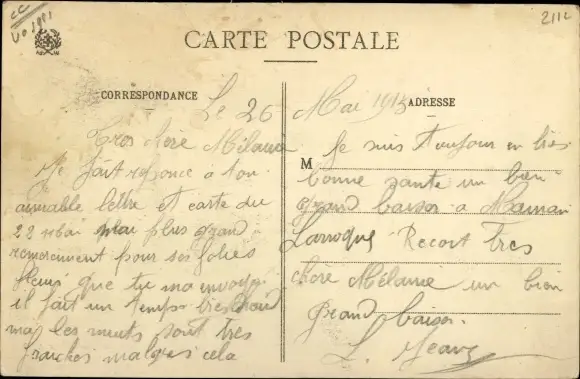 CC
2112
CARTE POSTALE
CORRESPONDANCE
ADRESSE
Le 26 Mai 1915
Tres chere Mélanie
Je fait reponce à ton
aimable lettre et carte du
22 mai plus grand
remerciment pour ses jolies
fleurs que tu ma envoyer
il fait un temp tres chaud
mai les nuits sont tres
fraiches malgres cela
M
Je suis toujour en tres
bonne sante un bien
grand baiser a Maman
Larroque Recoit tres
chere Mélanie un bien
grand baiser.
L. Jean